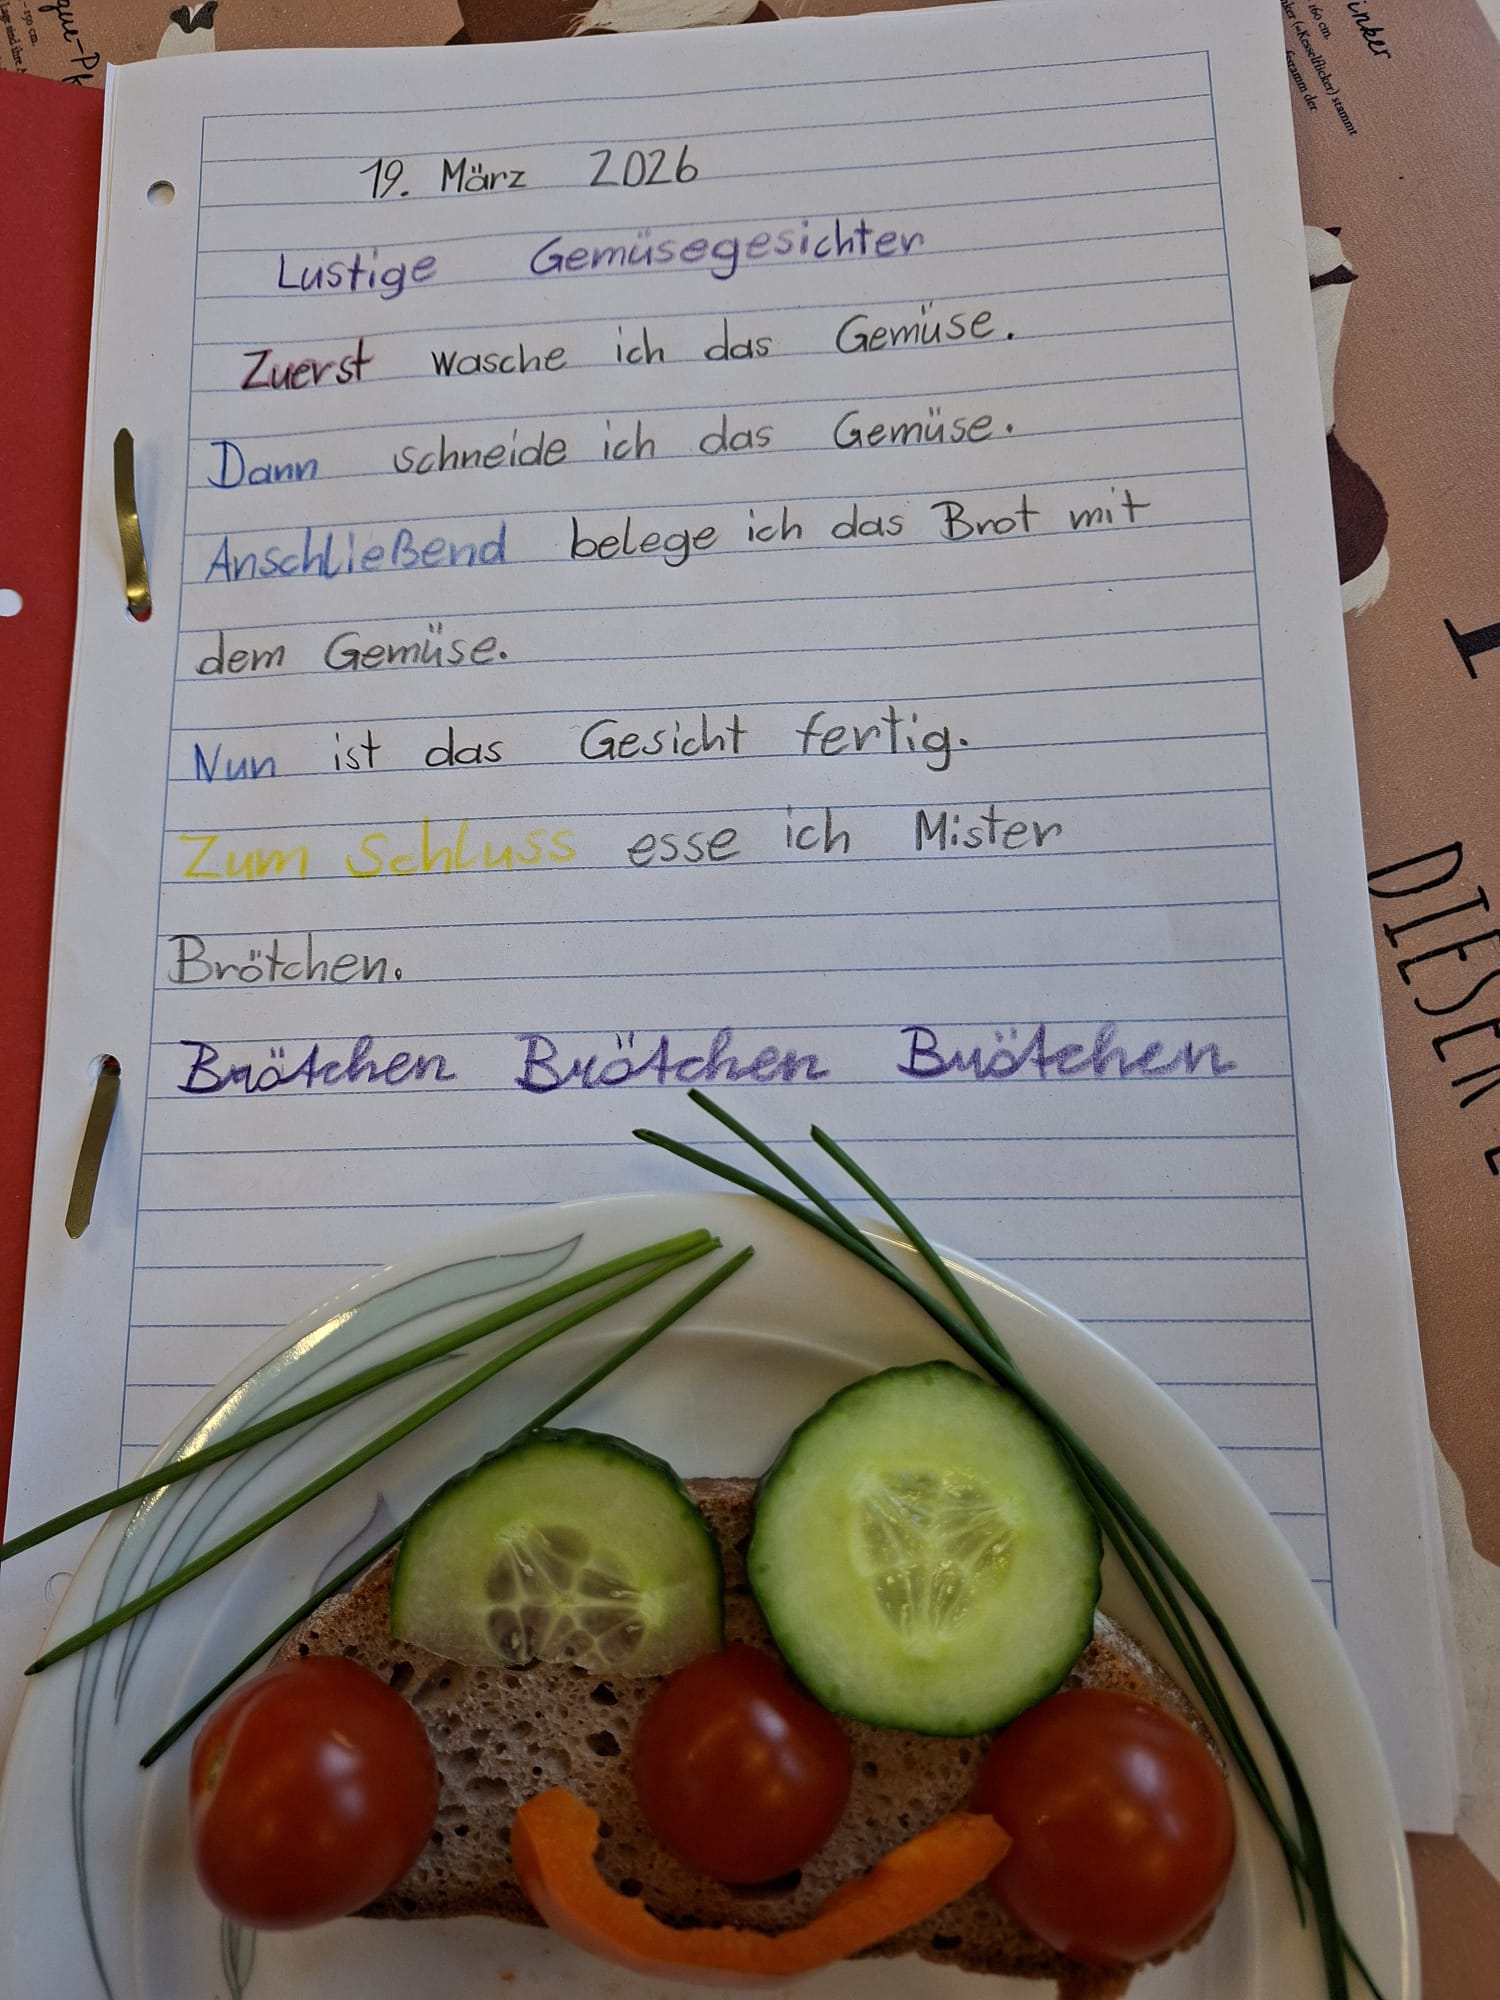 19. März 2026
Lustige Gemüsegesichter
Zuerst wasche ich das Gemüse.
Dann schneide ich das Gemüse.
Anschließend belege ich das Brot mit
dem Gemüse.
Nun ist das Gesicht fertig.
Zum Schluss esse ich Mister
Brötchen.
Brötchen Brötchen Brötchen
inker
160 cm.
(»Kesselflicker) stammt
der
DIESER